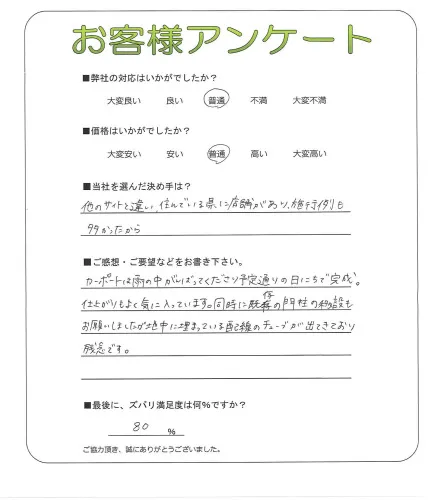 お客様アンケート
■弊社の対応はいかがでしたか?
大変良い 良い 普通 不満 大変不満
■価格はいかがでしたか?
大変安い 安い 普通 高い 大変高い
■当社を選んだ決め手は?
他のサイトと違い、住んでいる県に店舗があり、施工例も
多かったから
■ご感想・ご要望などをお書き下さい。
カーポートは雨の中がんばってくださり予定通りの日にちで完成。
仕上がりもよく気に入っています。同時に既存の門柱の移設も
お願いしましたが地中に埋まっている配線のチューブが出てきており
残念です。
■最後に、ズバリ満足度は何%ですか?
80 %
ご協力頂き、誠にありがとうございました。